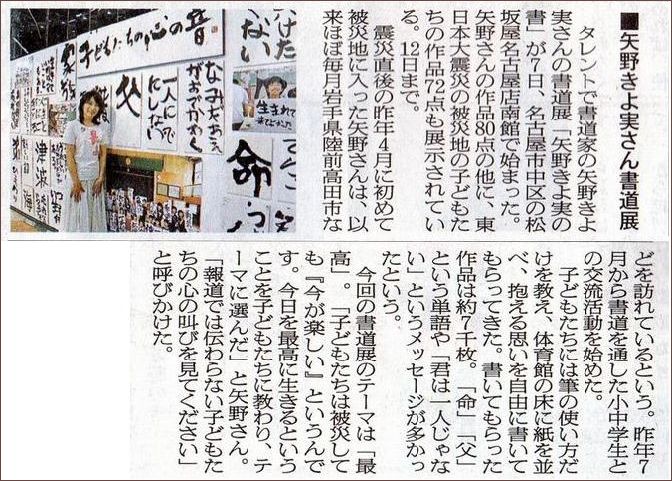 ■矢野きよ実さん書道展
タレントで書道家の矢野きよ
実さんの書道展「矢野きよ実の
書」が7日、名古屋市中区の松
坂屋名古屋店南館で始まった。
矢野さんの作品80点の他に、東
日本大震災の被災地の子どもた
ちの作品72点も展示されてい
る。12日まで。
震災直後の昨年4月に初めて
被災地に入った矢野さんは、以
来ほぼ毎月岩手県陸前高田市な
どを訪れているという。昨年7
月から書道を通した小中学生と
の交流活動を始めた。
子どもたちには筆の使い方だ
けを教え、体育館の床に紙を並
べ、抱える思いを自由に書いて
もらってきた。書いてもらった
作品は約7千枚。「命」「父」
という単語や「君は一人じゃな
い」というメッセージが多かっ
たという。
今回の書道展のテーマは「最
高」。「子どもたちは被災して
も『今が楽しい』というんで
す。今日を最高に生きるという
ことを子どもたちに教わり、テ
ーマに選んだ」と矢野さん。
「報道では伝わらない子どもた
ちの心の叫びを見てください」
と呼びかけた。
子どもたちの心の音
命
一人に
しない
父
津波